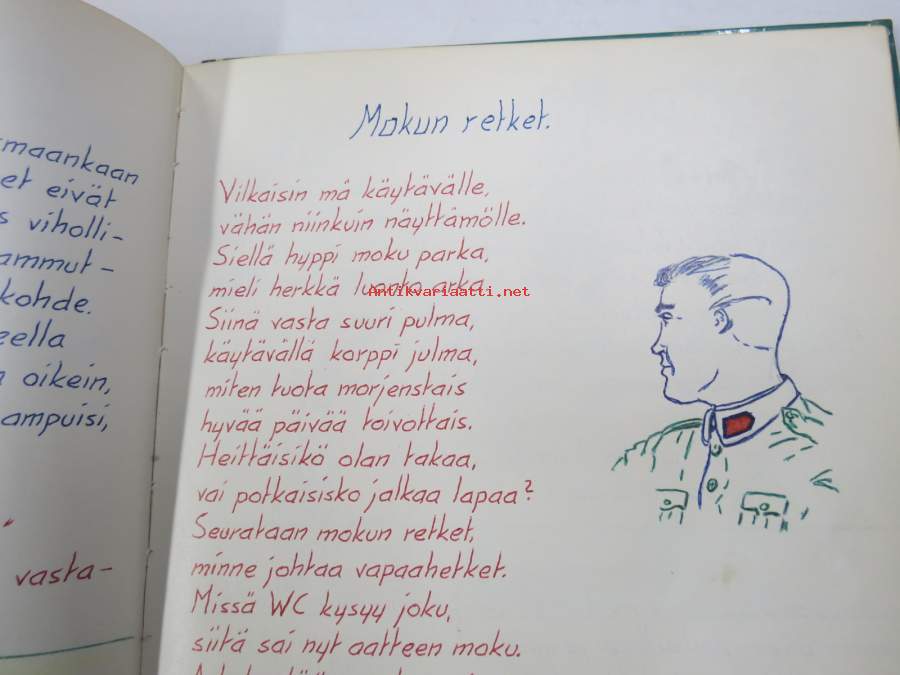 maankaan
et eivät
s viholli-
ammut-
kohde.
eella
oikein,
ampuisi,
"
vasta-
Mokun retket.
Vilkaisin mä käytävälle,
vähän niinkuin näyttämölle.
Siellä hyppi moku parka,
mieli herkkä luonto arka.
Antikvariaatti.net
Siinä vasta suuri pulma,
käytävällä korppi julma,
miten tuota morjenstais
hyvää päivää toivottais.
Heittäisikö olan takaa,
vai potkaisisko jalkaa lapaa?
Seurataan mokun retket,
minne johtaa vapaahetket.
Missä WC kysyy joku,
siitä sai nyt aatteen moku.